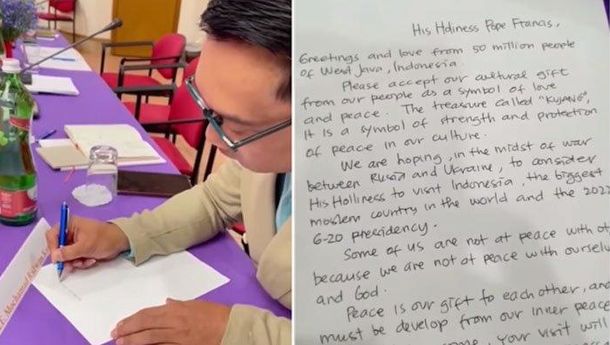 Mochamad
His Holiness Pope Francis,
Greetings and love from 50 million people
of West Java, Indonesia.
Please accept our cultural gift
from our people as a symbol of love
and peace. The treasure called "KUJANG",
It is a symbol of strength and protection
of peace in our culture.
We are hoping, in the midst of war
between Rusia and Ukraine, to consider
His Holliness to visit Indonesia, the biggest
moslem country in the world and the 2022
G-20 presidency.
Some of us are not at peace with
because we are not at peace with
and God.
Peace is our gift to each other, and
must be develop from our inner peace
your visit will